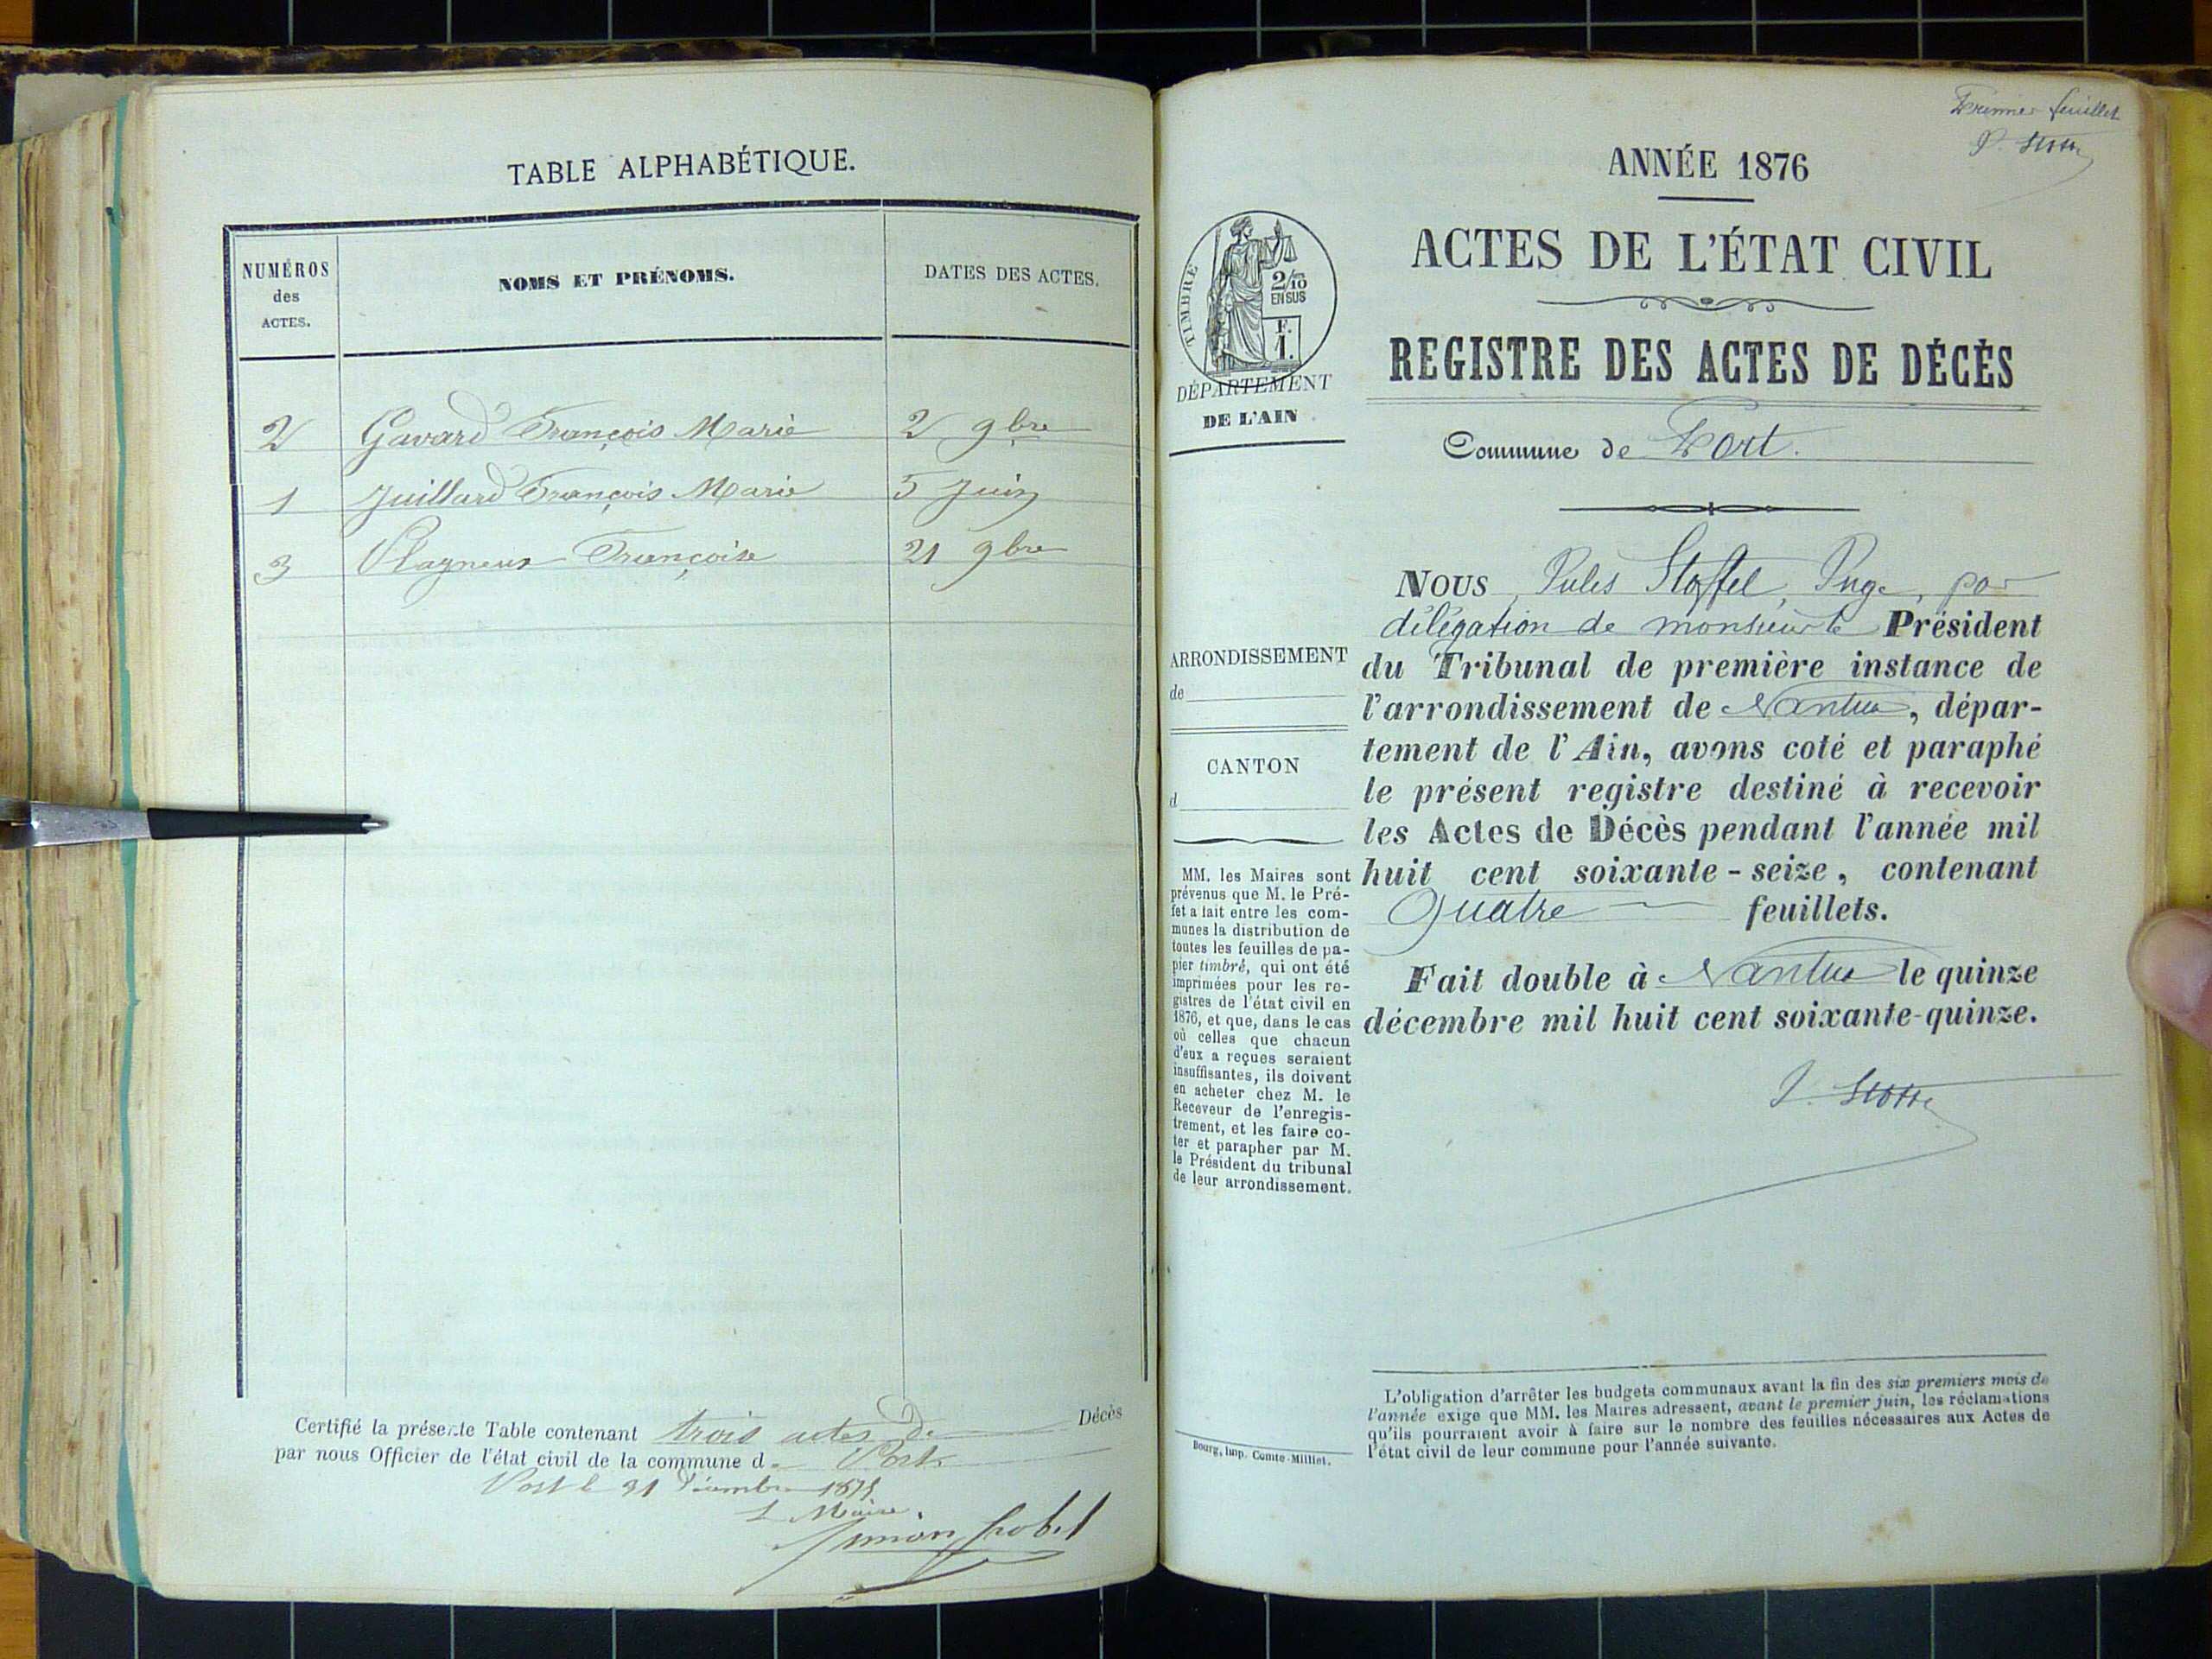 TABLE ALPHABÉTIQUE.
NUMÉROS
des
ACTES.
NOMS ET PRÉNOMS.
DATES DES ACTES.
2 Gavard François Marie 2 9bre
1 Juillard François Marie 5 Juin
3 Plagneux Françoise 21 9bre
Certifié la présente Table contenant trois actes de Décès
par nous Officier de l'état civil de la commune d Port
Port le 31 Décembre 1875
Le Maire
Premier feuillet
ANNÉE 1876
ACTES DE L'ÉTAT CIVIL
REGISTRE DES ACTES DE DÉCÈS
Commune de Port.
TIMBRE
2/10
EN SUS
F.
1.
DÉPARTEMENT
DE L'AIN
ARRONDISSEMENT
de
CANTON
d
MM. les Maires sont
prévenus que M. le Pré-
fet a fait entre les com-
munes la distribution de
toutes les feuilles de pa-
pier timbré, qui ont été
imprimées pour les re-
gistres de l'état civil en
1876, et que, dans le cas
où celles que chacun
d'eux a reçues seraient
insuffisantes, ils doivent
en acheter chez M. le
Receveur de l'enregis-
trement, et les faire co-
ter et parapher par M.
le Président du tribunal
de leur arrondissement.
NOUS Jules Stoffel, Juge, par
délégation de monsieur le Président
du Tribunal de première instance de
l'arrondissement de Nantua, dépar-
tement de l'Ain, avons coté et paraphé
le présent registre destiné à recevoir
les Actes de Décès pendant l'année mil
huit cent soixante-seize, contenant
Quatre feuillets.
Fait double à Nantua le quinze
décembre mil huit cent soixante-quinze.
L'obligation d'arrêter les budgets communaux avant la fin des six premiers mois de
l'année exige que MM. les Maires adressent, avant le premier juin, les réclamations
qu'ils pourraient avoir à faire sur le nombre des feuilles nécessaires aux Actes de
l'état civil de leur commune pour l'année suivante.
Bourg, Imp. Comte-Milliet.